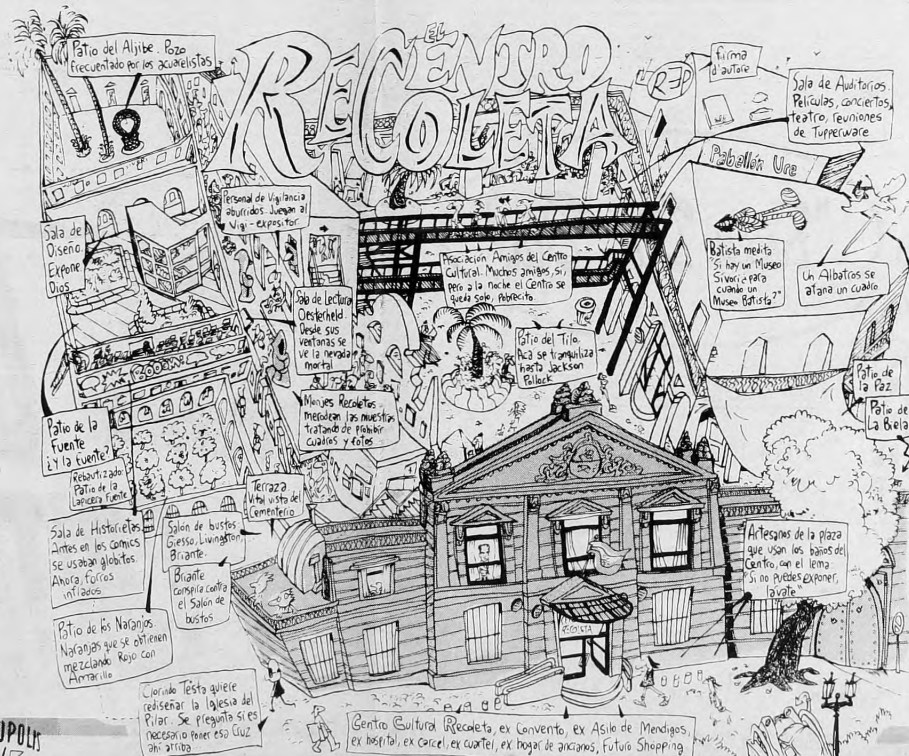 EL
CENTRO
RECOLETA
Patio del Aljibe. Pozo
frecuentado por los acuarelistas
firma
d'autore
RED
Sala de Auditorios.
Películas, conciertos,
teatro, reuniones
de Tupperware
Pabellón Ure
Personal de Vigilancia
aburridos. Juegan al
Vigi-expositor
Sala de
Diseño.
Expone:
Dios
Asociación Amigos del Centro
Cultural. Muchos amigos, sí,
pero a la noche el Centro se
queda solo, pobrecito
Batista medita
"Si hay un Museo
Sívori ¿para
cuándo un
Museo Batista?"
Un Albatros se
afana un cuadro
Sala de Lectura
Oesterheld.
Desde sus
ventanas se
ve la nevada
mortal
Patio del Tilo.
Acá se tranquiliza
hasta Jackson
Pollock
Patio de
la Paz
Patio de
La Biela
Monjes Recoletos
merodean las muestras
tratando de prohibir
cuadros y fotos
Patio de la
Fuente
¿Y la fuente?
Rebautizado:
Patio de la
lapicera fuente
Terraza.
Vital vista del
cementerio
Sala de Historietas
Antes en los comics
se usaban globitos.
Ahora, forros
inflados
Salón de bustos
Giesso, Livingston
Briante.
Briante
conspira contra
el Salón de
bustos
Artesanos de la plaza
que usan los baños del
Centro, con el lema:
"Si no puedes exponer,
lavate"
Patio de los Naranjos.
Naranjas que se obtienen
mezclando Rojo con
Amarillo
RECOLETA
Clorindo Testa quiere
rediseñar la Iglesia del
Pilar. Se pregunta si es
necesario poner esa Cruz
ahí arriba
Centro Cultural Recoleta, ex Convento, ex Asilo de Mendigos,
ex hospital, ex carcel, ex cuartel, ex hogar de ancianos, futuro Shopping